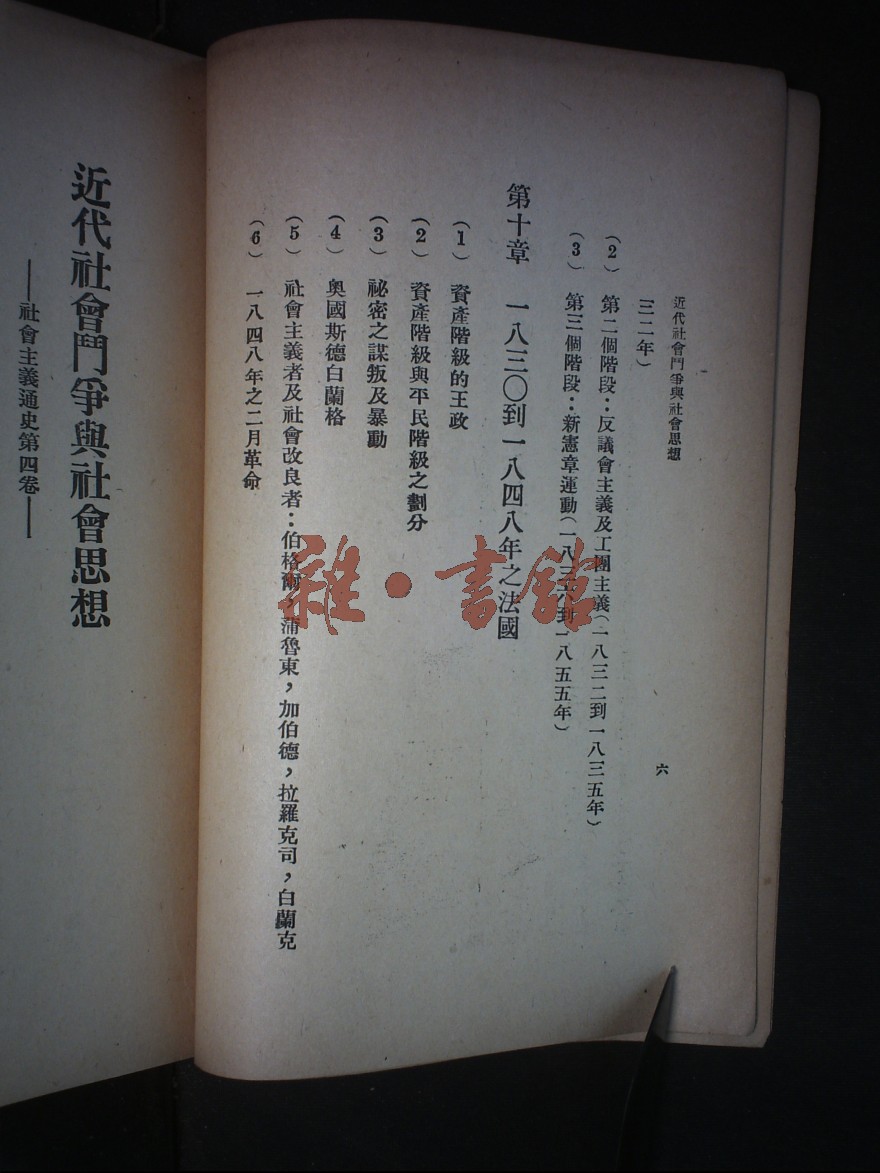 近代社會鬥爭與社會思想
六
三二年)
(2) 第二個階段:反議會主義及工團主義(一八三二到一八三五年)
(3) 第三個階段:新憲章運動(一八三六到一八五五年)
第十章 一八三〇到一八四八年之法國
(1) 資產階級的王政
(2) 資產階級與平民階級之劃分
(3) 祕密之謀叛及暴動
(4) 奧國斯德白蘭格
(5) 社會主義者及社會改良者:伯格爾,蒲魯東,加伯德,拉羅克司,白蘭克
(6) 一八四八年之二月革命
近代社會鬥爭與社會思想
——社會主義通史第四卷——
雜·書館